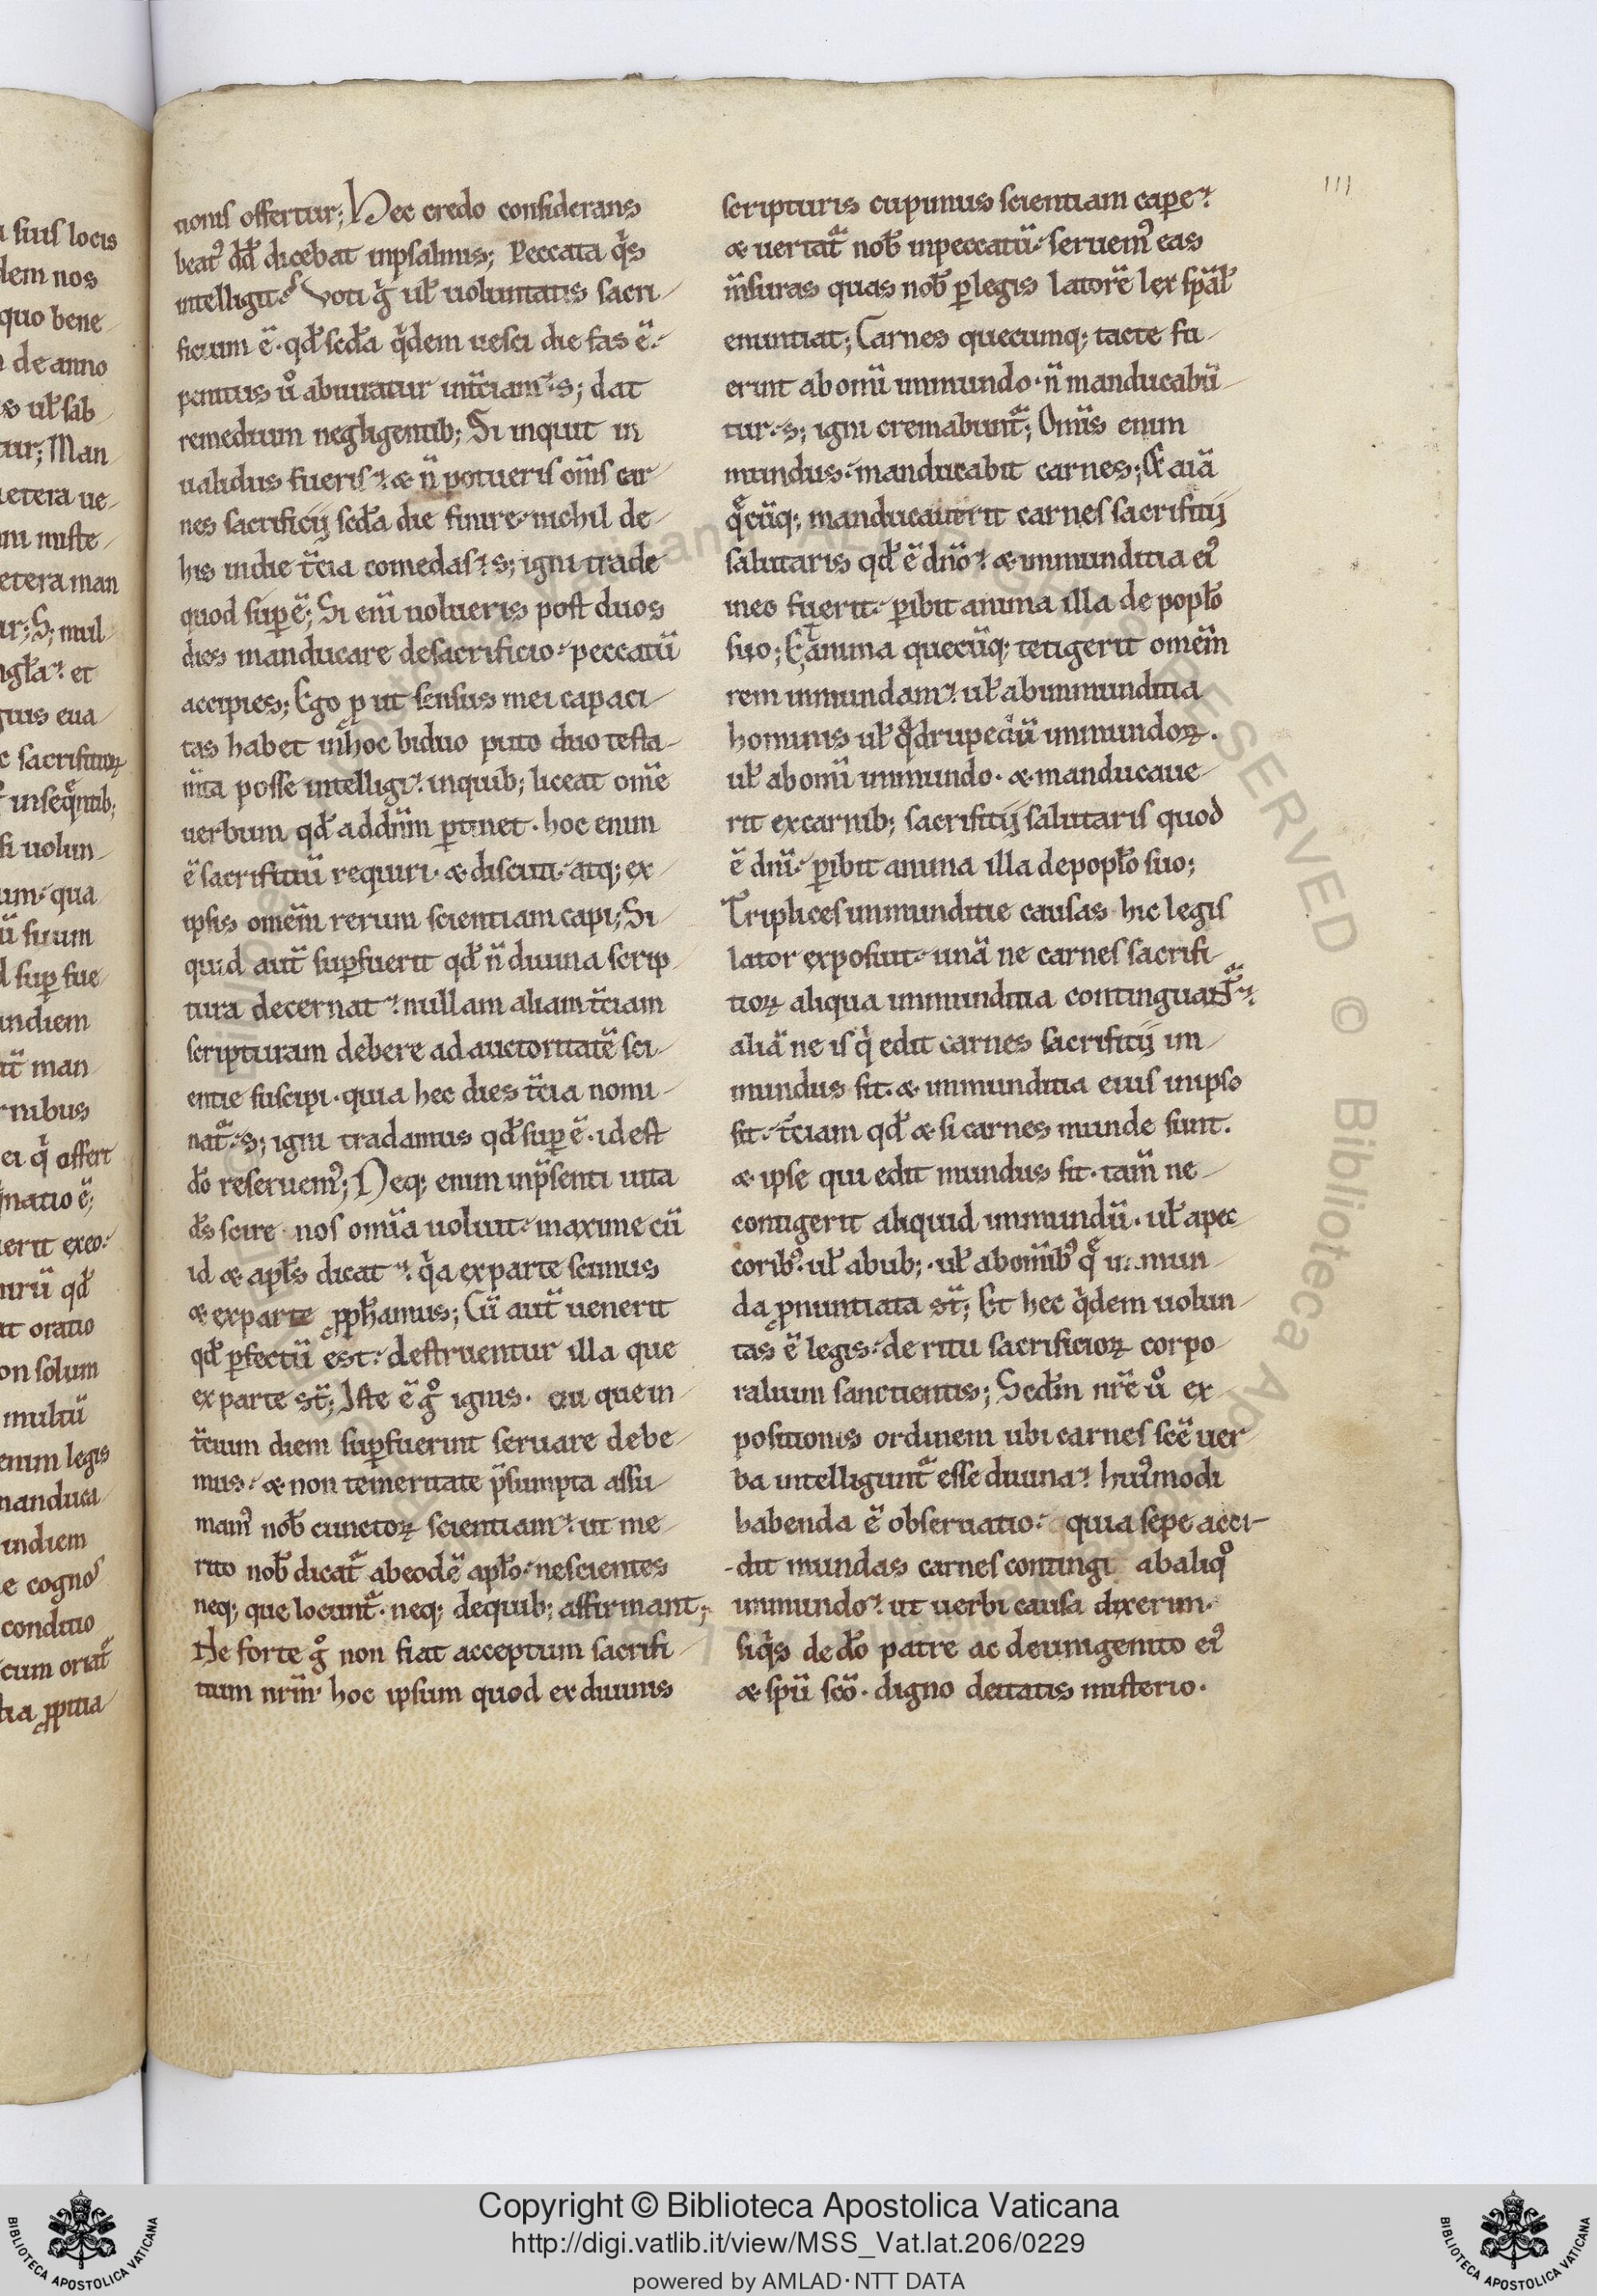 111
tionis offertur; Hec credo considerans
beat᾽ dd̄ dicebat inpsalmis; Peccata qͥs
intelligit? Voti gͥ ul̄ uoluntatis sacri
ficium ē· qd̄ scd̄a qͥdem uesci die fas ē·
penitus uͦ abutatur int̄ciam· s; dat
remedium negligentib; Si inquit in
ualidus fueris· & n̄ potueris om̄s car
nes sacrificij scd̄a die finire· nichil de
his indie t̄cia comedas· s; igni trade
quod suꝑē; Si eni̅ uolueris post duos
dies manducare desacrificio· peccatū
accipies; Ego ꝓ ut sensus mei capaci
tas habet in hoc biduo puto duo testa
m̄ta posse intelligi· inquib; liceat om̄e
uerbum qd̄ addn̄m ꝑtinet· hoc enim
ē sacrifitiū requiri· & discuti· atq; ex
ipsis omēm rerum scientiam capi; Si
quid aut̄ suꝑfuerit qd̄ n̄ diuina scrip
tura decernat· nullam aliam t̄ciam
scripturam debere ad auctoritatē sci
entie suscipi· quia hec dies t̄cia nomi
natᷓ· s; igni tradamus qd̄ suꝑē· idest
dō reseruem᾽; Neq; enim inp̄senti uita
ds̄ scire nos om̄ia uoluit· maxime cū
id & apl̄s dicat· qͥa exparte scimus
& exparte ꝓph̄amus; Cū aut̄ uenerit
qd̄ ꝑfectū est· destruentur illa que
exparte st̄; Iste ē gͦ ignis· cui que in
t̄cium diem suꝑfuerint seruare debe
mus· & non temeritate p̄sumpta assu
mam᾽ nob̄ cunctoꝝ scientiam· ut me
rito nob̄ dicatᷓ abeodē apl̄o· nescientes
neq; que locuntᷓ· neq; dequib; affirmant;
Ne forte gͦ non fiat acceptum sacrifi
tium nrm̄ hoc ipsum quod ex diuinis
scripturis cupimus scientiam caꝑe·
& uertatᷓ nob̄ inpeccatū· seruem᾽ eas
m̄suras quas nob̄ ꝑlegis latorē lex sp̄al̄
enuntiat; Carnes quecumq; tacte fu
erint ab omī inmundo· n̄ manducabū
tur· s; igni cremabuntᷓ; Omīs enim
mundus· manducabit carnes; & aīa
qͤcūq; manducauerit carnes sacrifitij
salutaris qd̄ ē dn̄o· & inmunditia ei᾽
ineo fuerit· ꝑibit anima illa de popl̄o
suo; Et anima quecūq; tetigerit omēm
rem inmundam· ul̄ abinmunditia
hominis ul̄ qᷓdrupedū inmundoꝝ·
ul̄ abomī inmundo· & manducaue
rit excarnib; sacrifitij salutaris quod
ē dn̄i· ꝑibit anima illa depopl̄o suo;
Triplices inmunditie causas hic legis
lator exposuit· unā ne carnes sacrifi
tioꝝ aliqua inmunditia continguantᷓ·
aliā ne is qͥ edit carnes sacrifitij im
mundus sit· & inmunditia eius inipso
sit· t̄ciam qd̄ & si carnes munde sunt·
& ipse qui edit mundus sit· tam̄ ne
contigerit aliquid inmundū· ul̄ apec
corib᾽· ul̄ abub;· ul̄ abomīb᾽ qͤ inmun
da ꝓnuntiata st̄; Et hec qͥdem uolun
tas ē legis· de ritu sacrificioꝝ corpo
ralium sanctientis; Sed in nr̄e uͦ ex
positionis ordinem ubi carnes scē uer
ba intelliguntᷓ esse diuina· hui᾽modi
habenda ē obseruatio· quia sepe acci
dit mundas carnes contingi abaliqͦ
inmundo· ut uerbi causa dixerim·
siqͥs dedō patre ac deunigenito ei᾽
& sp̄u scō· digno deitatis misterio·
Copyright © Biblioteca Apostolica Vaticana
http://digi.vatlib.it/view/MSS_Vat.lat.206/0229
powered by AMLAD·NTT DATA